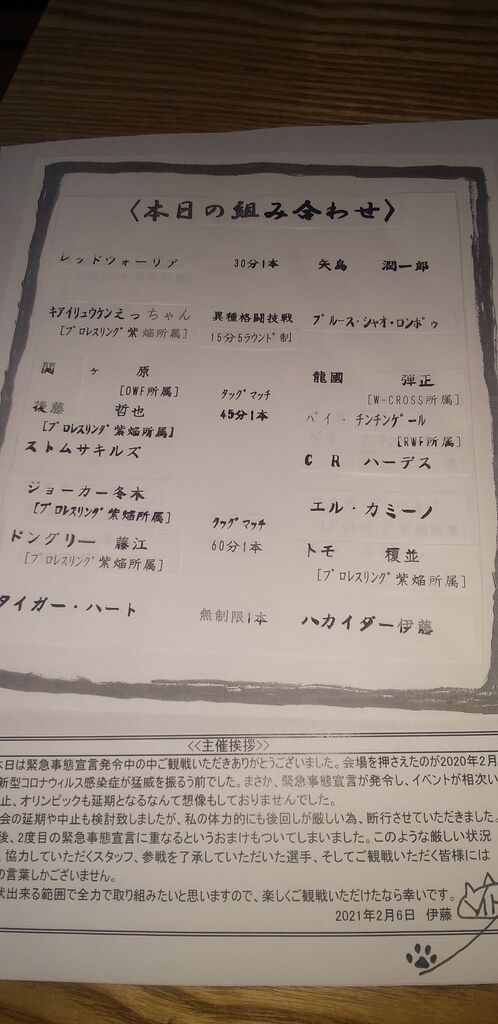 〈本日の組み合わせ〉
レッドウォーリア 30分1本 矢島 潤一郎
キアイリュウケンえっちゃん 異種格闘技戦 ブルース・シャオ・ロンポゥ
[プロレスリング紫焔所属] 15分5ラウンド制
関ヶ原 龍國 弾正
[OWF所属] タッグマッチ [W-CROSS所属]
後藤 哲也 45分1本 パイ・チンチンゲール
[プロレスリング紫焔所属] [RWF所属]
ストムサキルズ CR ハーデス
ジョーカー冬本 エル・カミーノ
[プロレスリング紫焔所属] タッグマッチ
ドングリー 藤江 60分1本 トモ 榎並
[プロレスリング紫焔所属] [プロレスリング紫焔所属]
タイガー・ハート 無制限1本 ハカイダー伊藤
<<主催挨拶>>
本日は緊急事態宣言発令中の中ご観戦いただきありがとうございました。会場を押さえたのが2020年2月
新型コロナウィルス感染症が猛威を振るう前でした。まさか、緊急事態宣言が発令し、イベントが相次い
止、オリンピックも延期となるなんて想像もしておりませんでした。
会の延期や中止も検討致しましたが、私の体力的にも後回しが厳しい為、断行させていただきました。
後、2度目の緊急事態宣言に重なるというおまけもついてしまいました。このような厳しい状況
、協力していただくスタッフ、参戦を了承していただいた選手、そしてご観戦いただく皆様には
の言葉しかございません。
状出来る範囲で全力で取り組みたいと思いますので、楽しくご観戦いただけたなら幸いです。
2021年2月6日 伊藤